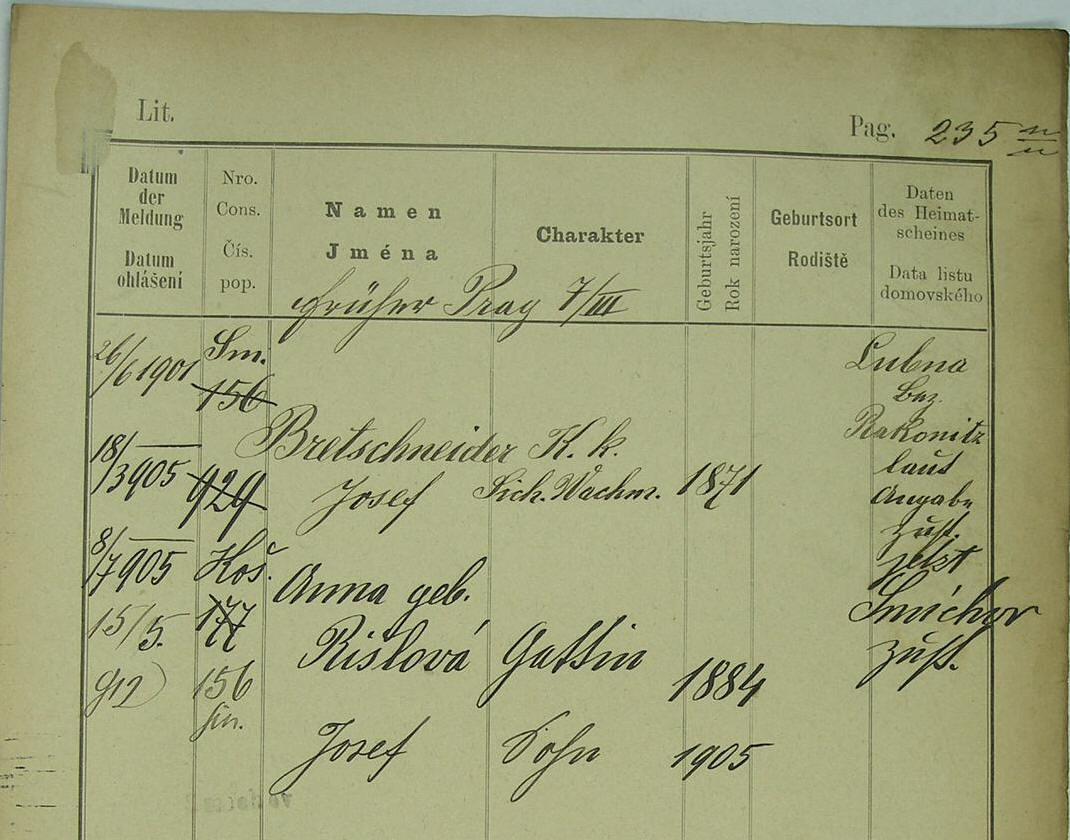 Lit.
Pag. 235
Datum
der
Meldung
Datum
ohlášení
Nro.
Cons.
Čís.
pop.
Namen
Jména
früher Prag 7/III
Charakter
Geburtsjahr
Rok narození
Geburtsort
Rodiště
Daten
des Heimat-
scheines
Data listu
domovského
26/6 1901 Sm.
156
Lubna
Bez.
Rakonitz
laut
Angabe
zust.
jetzt
Smíchov
zust.
18/3 905 929
Bretschneider K. k.
Josef Sich. Wachm. 1871
8/7 905 Koš.
177
Anna geb.
Rislová Gattin 1884
15/5.
912 156
Sm.
Josef Sohn 1905